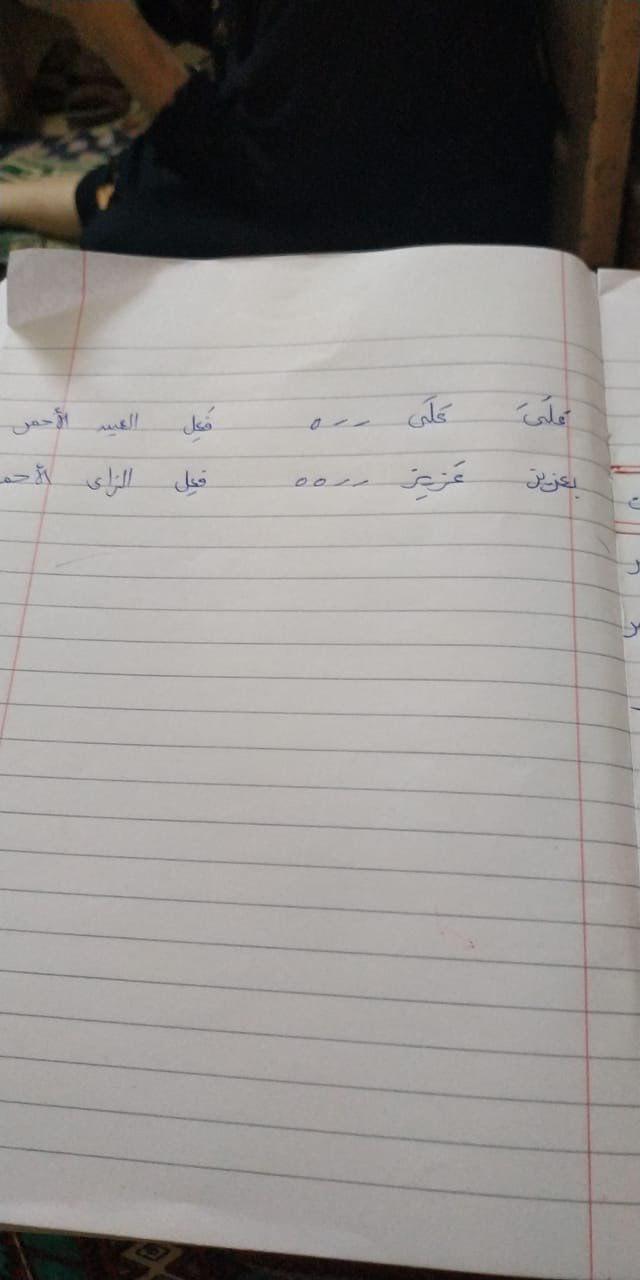 عَلَىَ عَلَى رره فَعِل العين الأحمر
بعزيز عَزِيز رر٥٥ فعِل الزاى الأحمـ